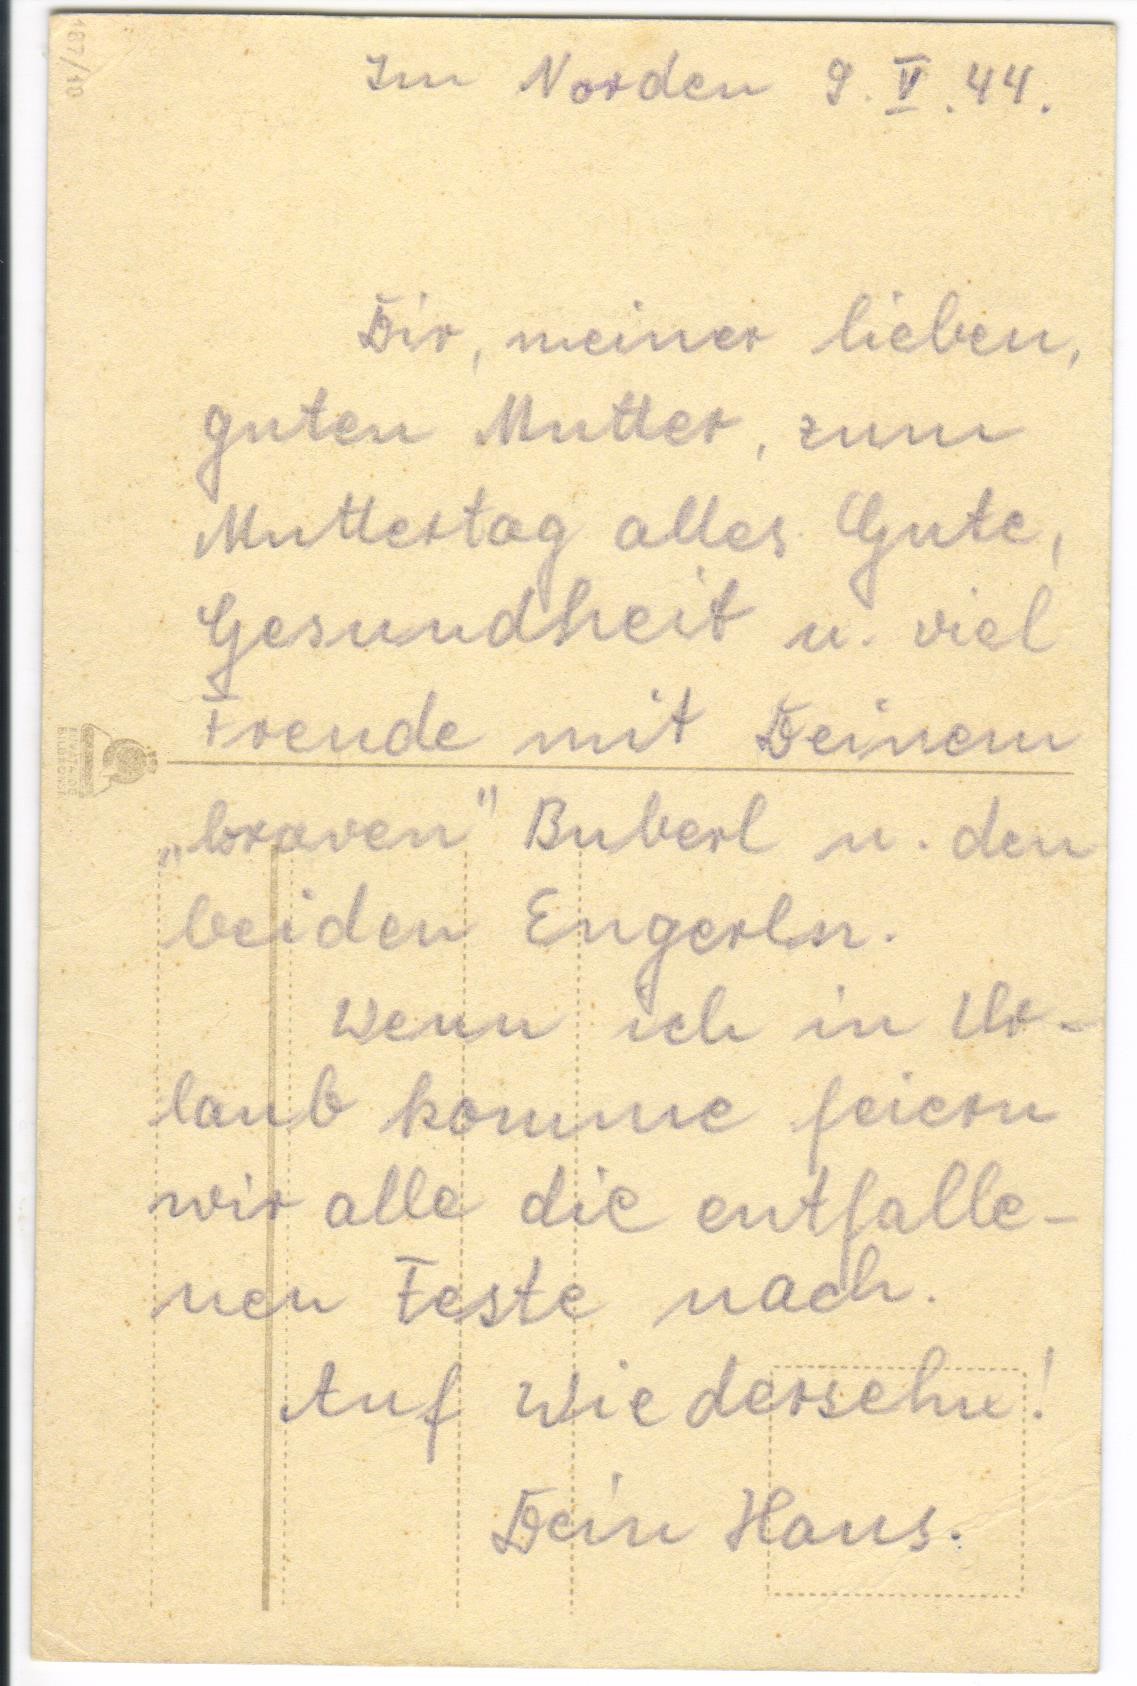 187/10
Im Norden 9. V. 44.
Dir, meiner lieben,
guten Mutter, zum
Muttertag alles Gute,
Gesundheit u. viel
Freude mit Deinem
„braven" Buberl u. den
beiden Engerln.
Wenn ich in Ur-
laub komme feiern
wir alle die entfalle-
nen Feste nach.
Auf Wiedersehn!
Dein Hans.